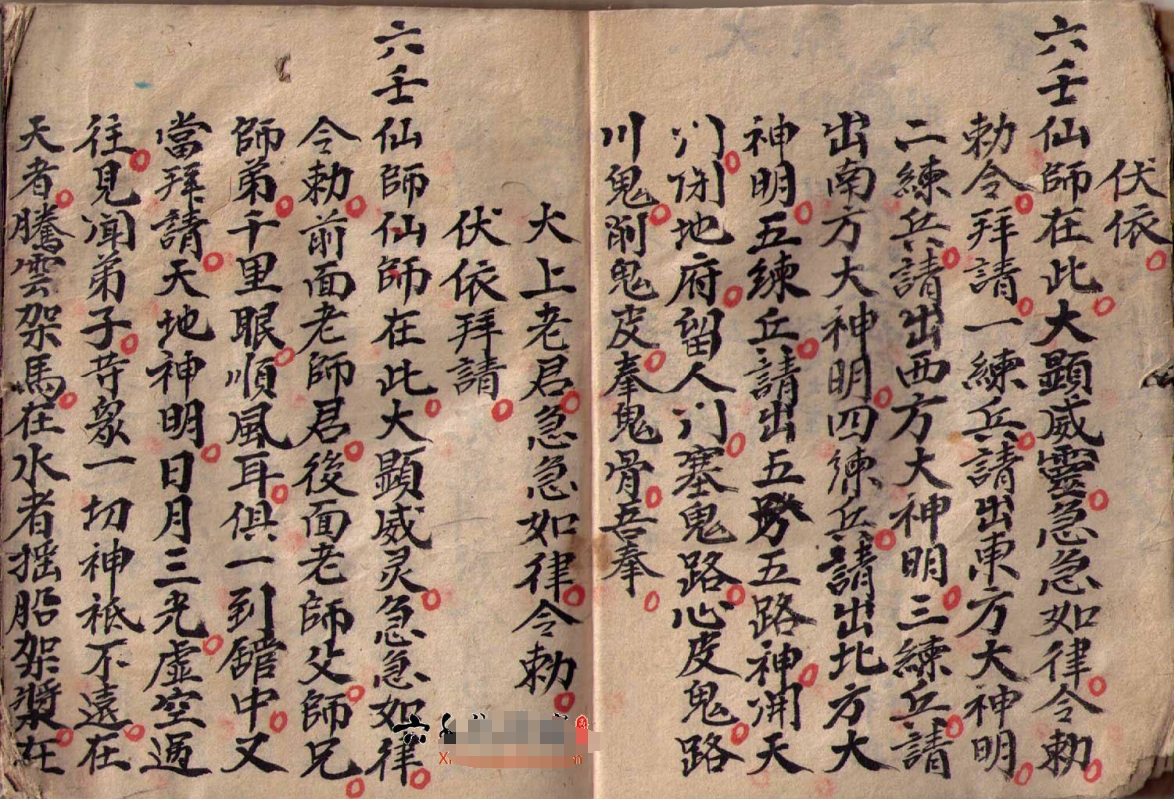 伏依
六壬仙師在此大顯威靈急急如律令勅
勅令拜請一練兵請出東方大神明
二練兵請出西方大神明三練兵請
出南方大神明四練兵請出北方大
神明五練丘請出五五路神開天
门閉地府留人门塞鬼路心皮鬼路
川鬼鬼皮奉鬼骨吾奉
大上老君急急如律令勅
伏依拜請
六壬仙師仙師在此大顯威灵急急如律
令勅前面老師君後面老師父師兄
師弟千里眼順風耳俱一到舘中又
當拜請天地神明日月三光虛空過
往見闻弟子苛衆一切神祇不遠在
天者騰雲架馬在水者摇船架槳在